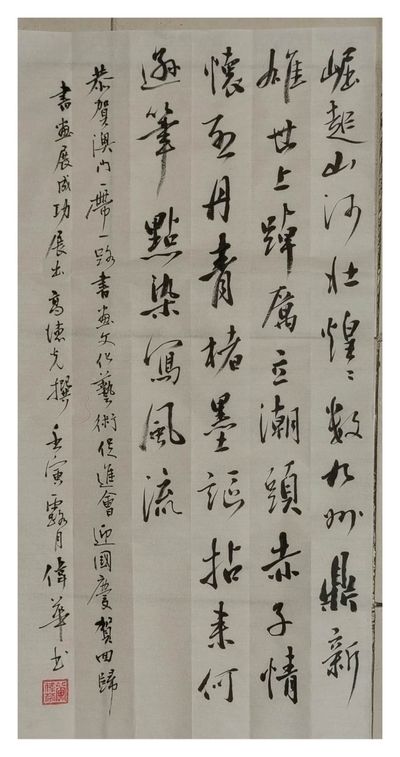 崛起山河壮煌々数九州鼎新
雄世上踔厲立潮頭赤子情
懷丹青楮墨謳拈来何
遜筆點染寫風流
恭賀澳门一帶一路書畫文化藝術促進會迎國慶賀回歸
書畫展成功展出 高德光撰 壬寅露月偉華书